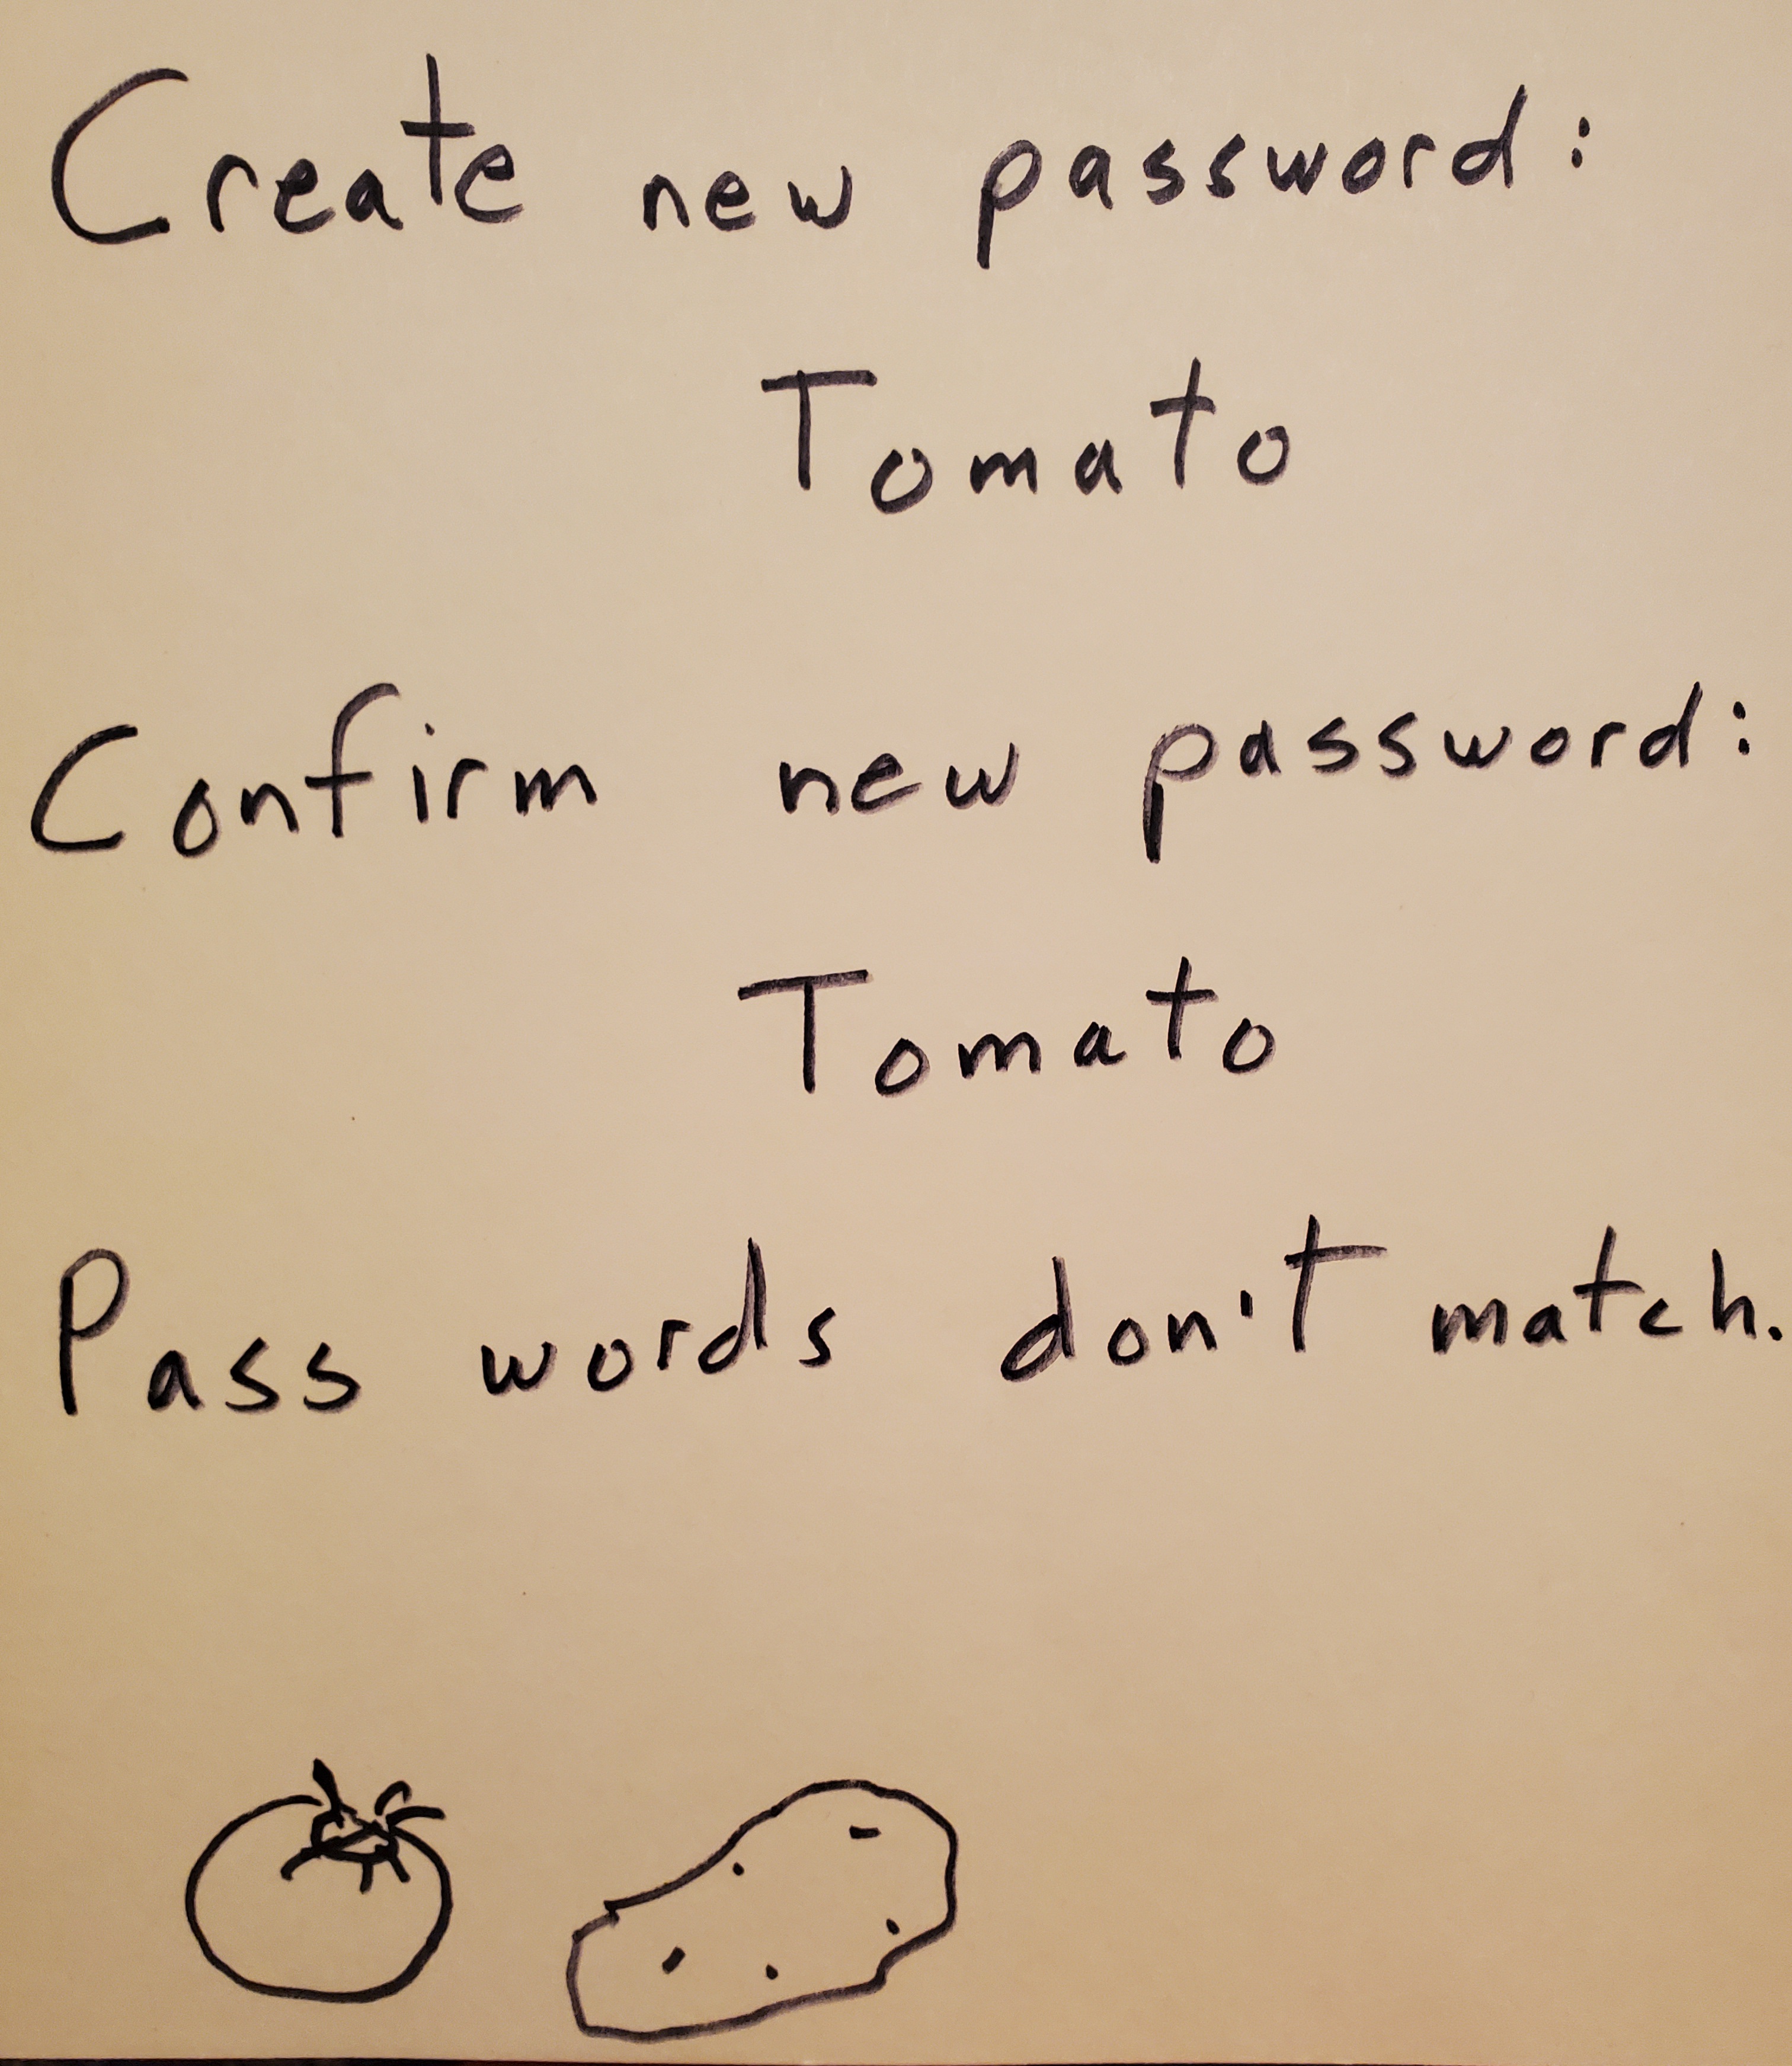 Create new password:
Tomato
Confirm new password:
Tomato
Pass words don't match.